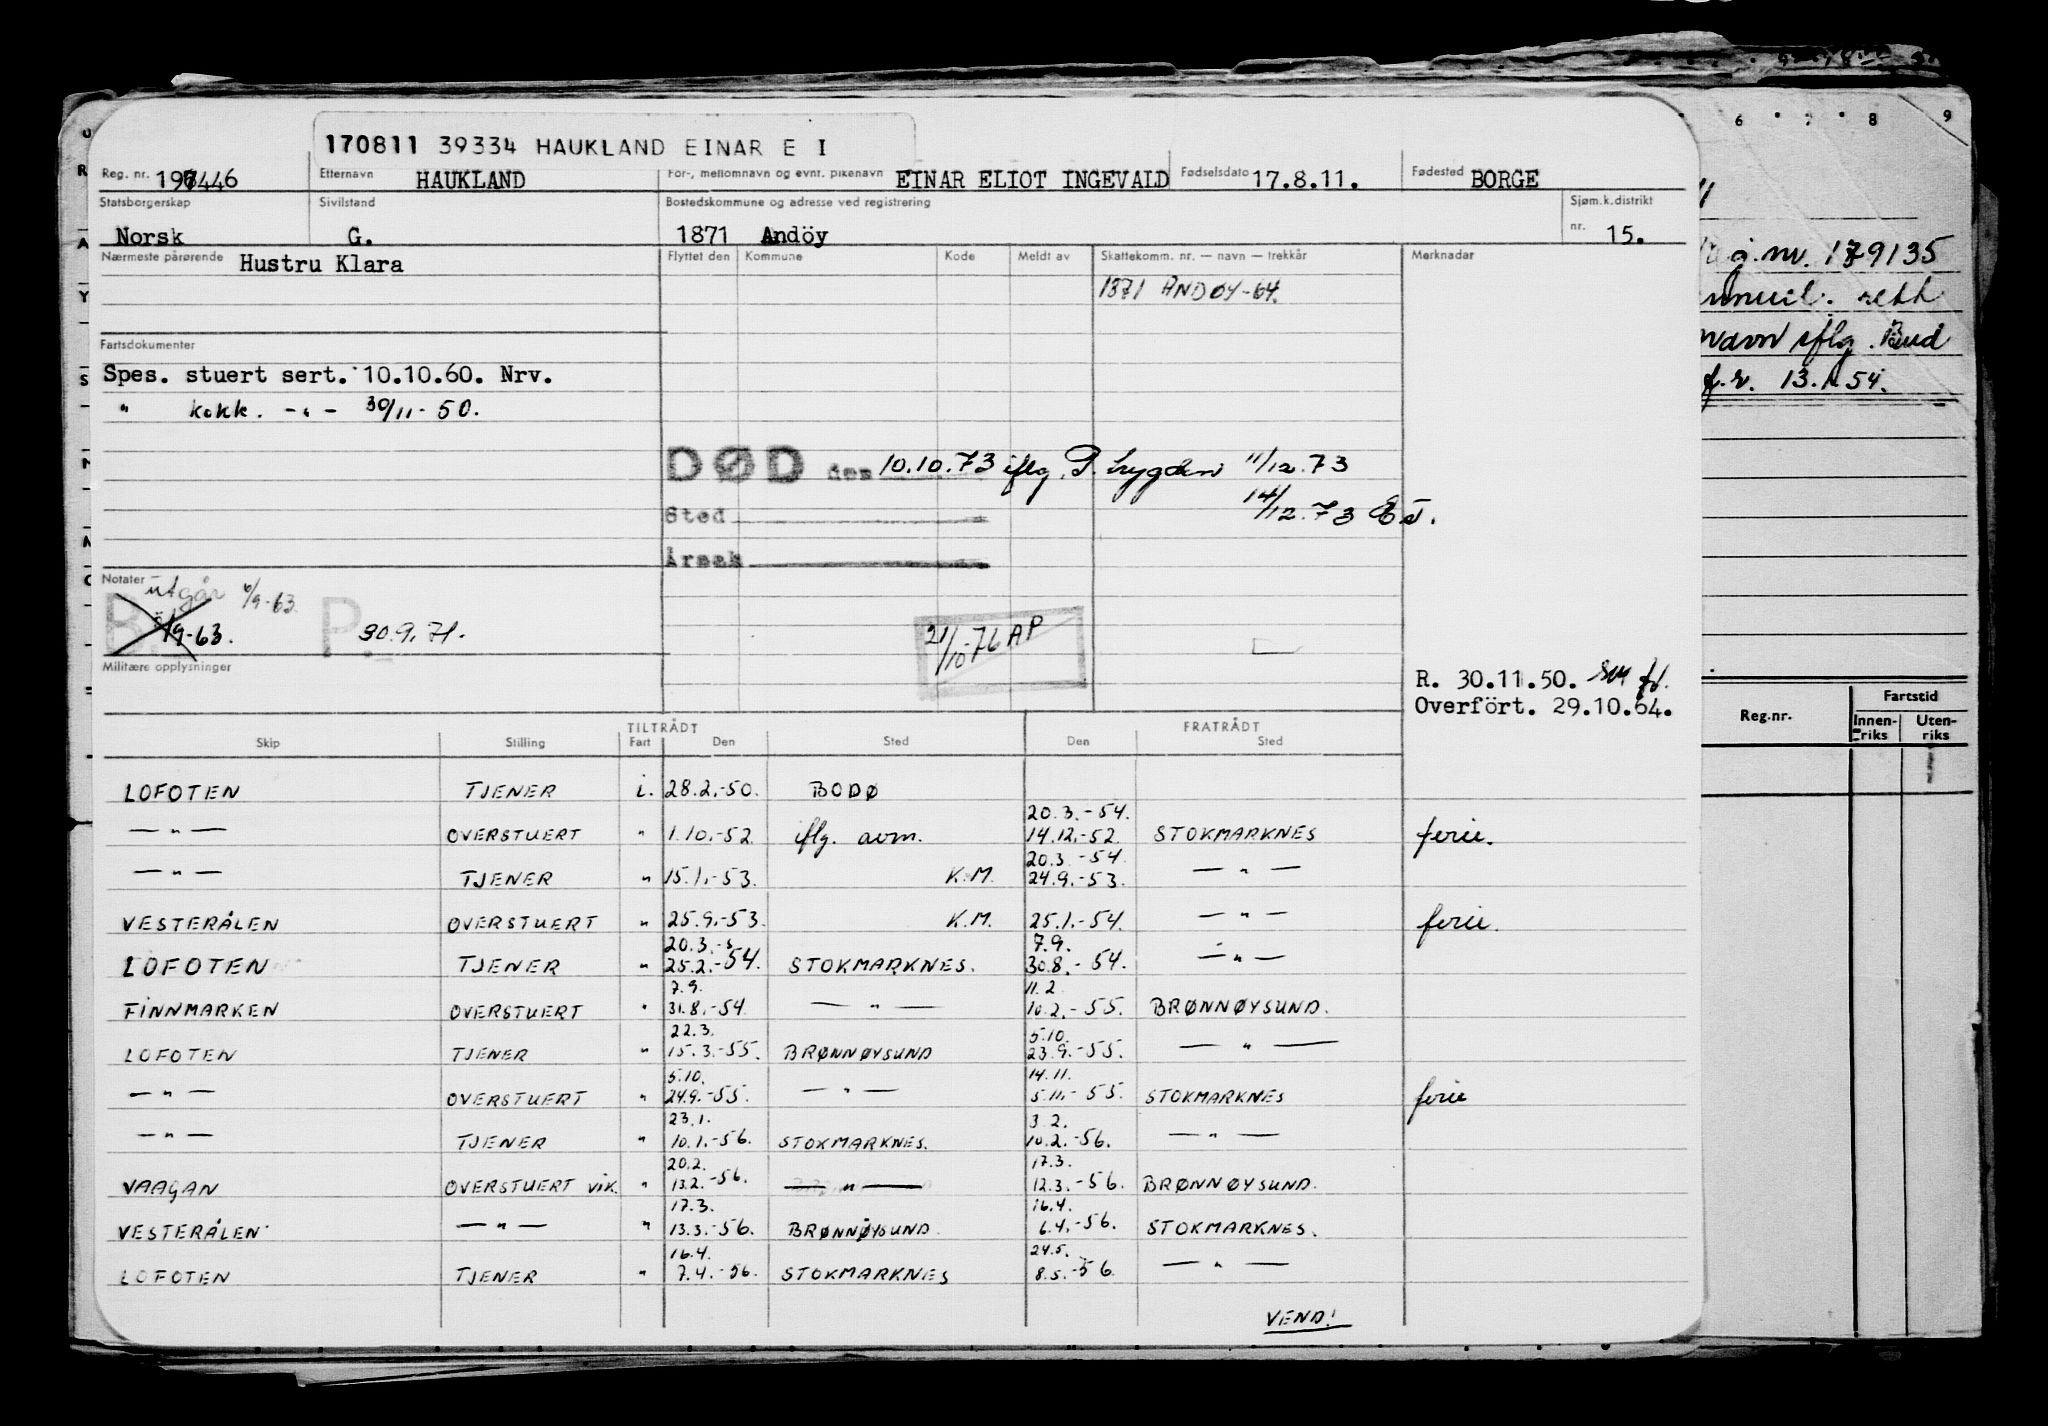 170811 39334 HAUKLAND EINAR E I
Reg. nr. 196446 Etternavn HAUKLAND For-, mellomnavn og evnt. pikenavn EINAR ELIOT INGEVALD Fødselsdato 17.8.11. Fødested BORGE
Statsborgerskap Sivilstand Bostedskommune og adresse ved registrering Sjøm.k.distrikt
Norsk G. 1871 Andöy nr. 15.
Nærmeste pårørende Hustru Klara Flyttet den Kommune Kode Meldt av Skattekomm. nr. — navn — trekkår Merknader
1871 ANDØY-64.
Fartsdokumenter
Spes. stuert sert. 10.10.60. Nrv.
" kokk. -"- 30/11-50.
DØD den 10.10.73 iflg. P. trygden 11/12.73
Sted 14/12.73
Årsak
Notater utgår 6/9-63.
B. /9-63. P. 30.9.71.
21/10-76 AP
Militære opplysninger
R. 30.11.50.
Overfört. 29.10.64.
TILTRÅDT FRATRÅDT
Skip Stilling Fart Den Sted Den Sted
LOFOTEN TJENER i. 28.2.-50. BODØ
20.3.-54.
—"— OVERSTUERT " 1.10.-52. iflg. avm. 14.12.-52. STOKMARKNES ferie.
20.3.-54.
—"— TJENER " 15.1.-53. K.M. 24.9.-53. —"—
VESTERÅLEN OVERSTUERT " 25.9.-53. K.M. 25.1.-54. —"— ferie.
20.3.- 7.9.
LOFOTEN TJENER " 25.2.-54. STOKMARKNES. 30.8.-54. —"—
7.9. 11.2.
FINNMARKEN OVERSTUERT " 31.8.-54. —"— 10.2.-55. BRØNNØYSUND.
22.3. 5.10.
LOFOTEN TJENER " 15.3.-55. BRØNNØYSUND 23.9.-55. —"—
5.10. 14.11.
—"— OVERSTUERT " 24.9.-55. —"— 5.11.-55. STOKMARKNES ferie
23.1. 3.2.
—"— TJENER " 10.1.-56. STOKMARKNES. 10.2.-56. —"—
20.2. 17.3.
VAAGAN OVERSTUERT VIK. " 13.2.-56. —"— 12.3.-56. BRØNNØYSUND.
17.3. 16.4.
VESTERÅLEN —"— " 13.3.-56. BRØNNØYSUND. 6.4.-56. STOKMARKNES.
16.4. 24.5.
LOFOTEN TJENER " 7.4.-56. STOKMARKNES 8.5.-56. —"—
VEND!
6 7 8 9
nr. 179135
navn iflg.
f.r. 13.1.54.
Reg.nr. Fartstid
Innen-riks Uten-riks